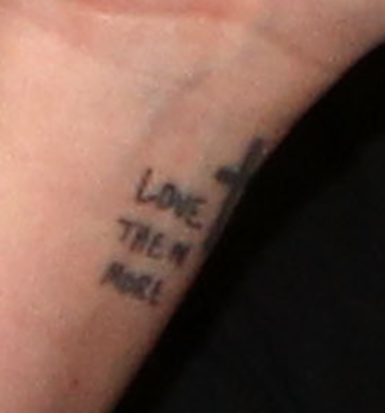 LOVE
THEM
MORE